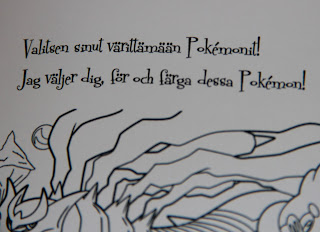 Valitsen sinut värittämään Pokémonit!
Jag väljer dig, för och färga dessa Pokémon!